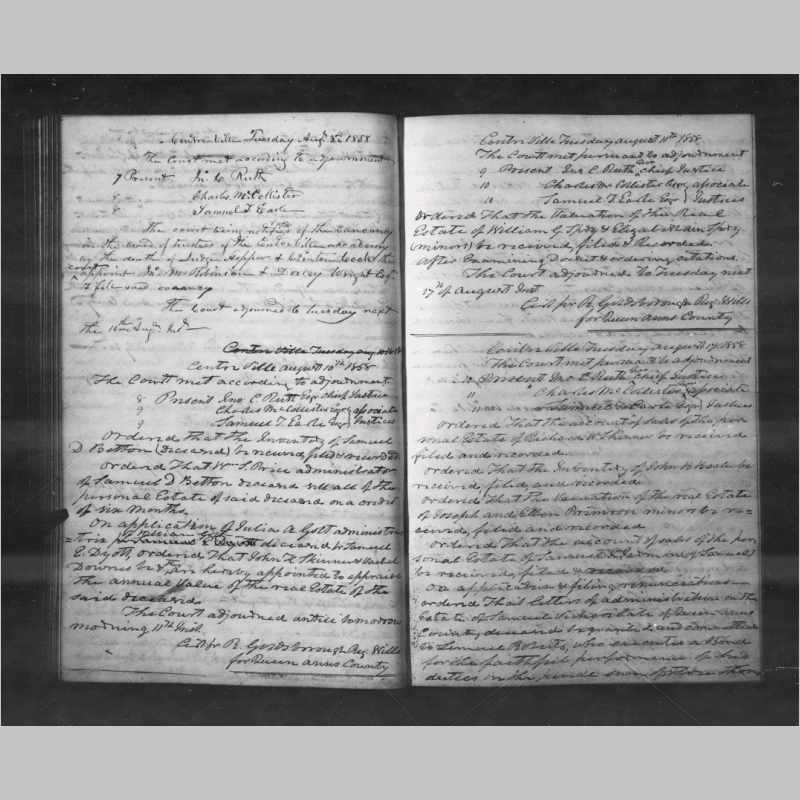 Centreville Tuesday Aug 3d 1858
The Court met according to adjournment
7 Present Jno C Ruth
8 Charles McCollister
8 Samuel T Earle
The court being notified of the vacancy
in the board of trustees of the Centreville academy
by the death of Judge Hopper &
appoint Jas McRobinson & Wright Esq
to fill said vacancy
The Court adjourned to Tuesday next
the 10th Aug Inst
Centre Ville Tuesday aug 10 1858
Centre Ville august 10th 1858
The Court met according to adjournment
8 Present Jno C Ruth Esqr Chief Justice
9 Charles McCollister Esqr associate
9 Samuel T. Earle Esqr Justices
Ordered that the Inventory of Samuel
D Betton (deceased) be received filed & recorded
Ordered That Wm S. Price administrator
of Samuel D Betton deceased sell all of the
personal Estate of said deceased on a credit
of six Months.
On application of Julia A Gott administra
=trix of William Gott Samuel E Dyott deceased & Samuel
E. Dyott, ordered that John F Skinner &
Downes be & are hereby appointed to appraise
the annual Value of the real Estate of the
said deceased.
The Court adjourned until tomorrow
morning 11th Inst.
Civil for R. Goldsborough Reg. Wills
for Queen Anns County
Centre Ville Tuesday august 11th 1858
The Court met pursuant to adjournment
9 Present Jno C Ruth Esqr Chief Justice
10 Charles McCollister Esqr associate
10 Samuel T. Earle Esqr Justices
Ordered That the Valuation of the Real
Estate of William G Spry & Elizabeth Ann Spry
(minors) be received, filed & Recorded.
After Examining Docket & ordering citations.
The Court adjourned to Tuesday next
17th of August Inst
Civil for R. Goldsborough Reg. Wills
for Queen Anns County
Centre Ville Tuesday august 17th 1858
The Court met pursuant to adjournment
10 Present Jno C Ruth Esqr Chief Justice
11 Charles McCollister associate
11 Samuel T Earle Esqr Justices
Ordered that the account of sales of the per
sonal Estate of Richard Skinner be received
filed and recorded.
Ordered That the Inventory of John B be
received, filed, and recorded
Ordered That the Valuation of the real Estate
of Joseph and Ellen minors be re=
ceived, filed and recorded
Ordered That the account of sales of the per
sonal Estate of Samuel
be received, filed & recorded
On application & filing renunciations
ordered That Letters of administration on the
Estate of Samuel late of Queen Anns
County deceased be granted and committed
to Samuel Roberts, who executes a Bond
for the faithful performance of his
duties in the sum of